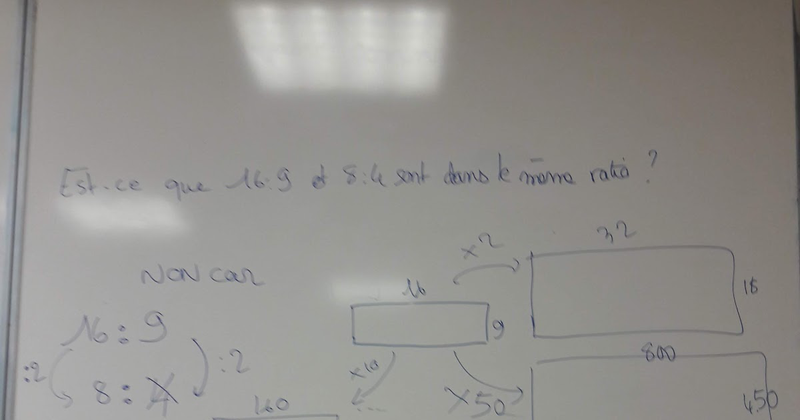 Est-ce que 16:9 et 8:4 sont dans le même ratio ?
NON car
16:9
:2
:2
8:4
16
9
x2
32
18
x10
160
...
x50
800
450